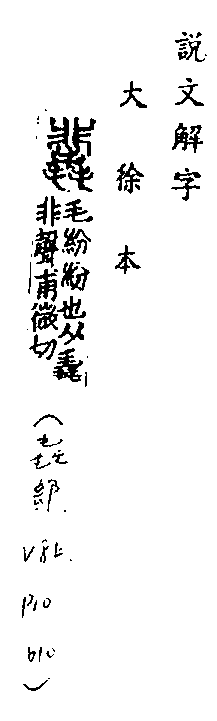 說文解字
大徐本
毛紛紛也从毳
非聲甫微切
(毳部.
V8上.
p10
b10
)